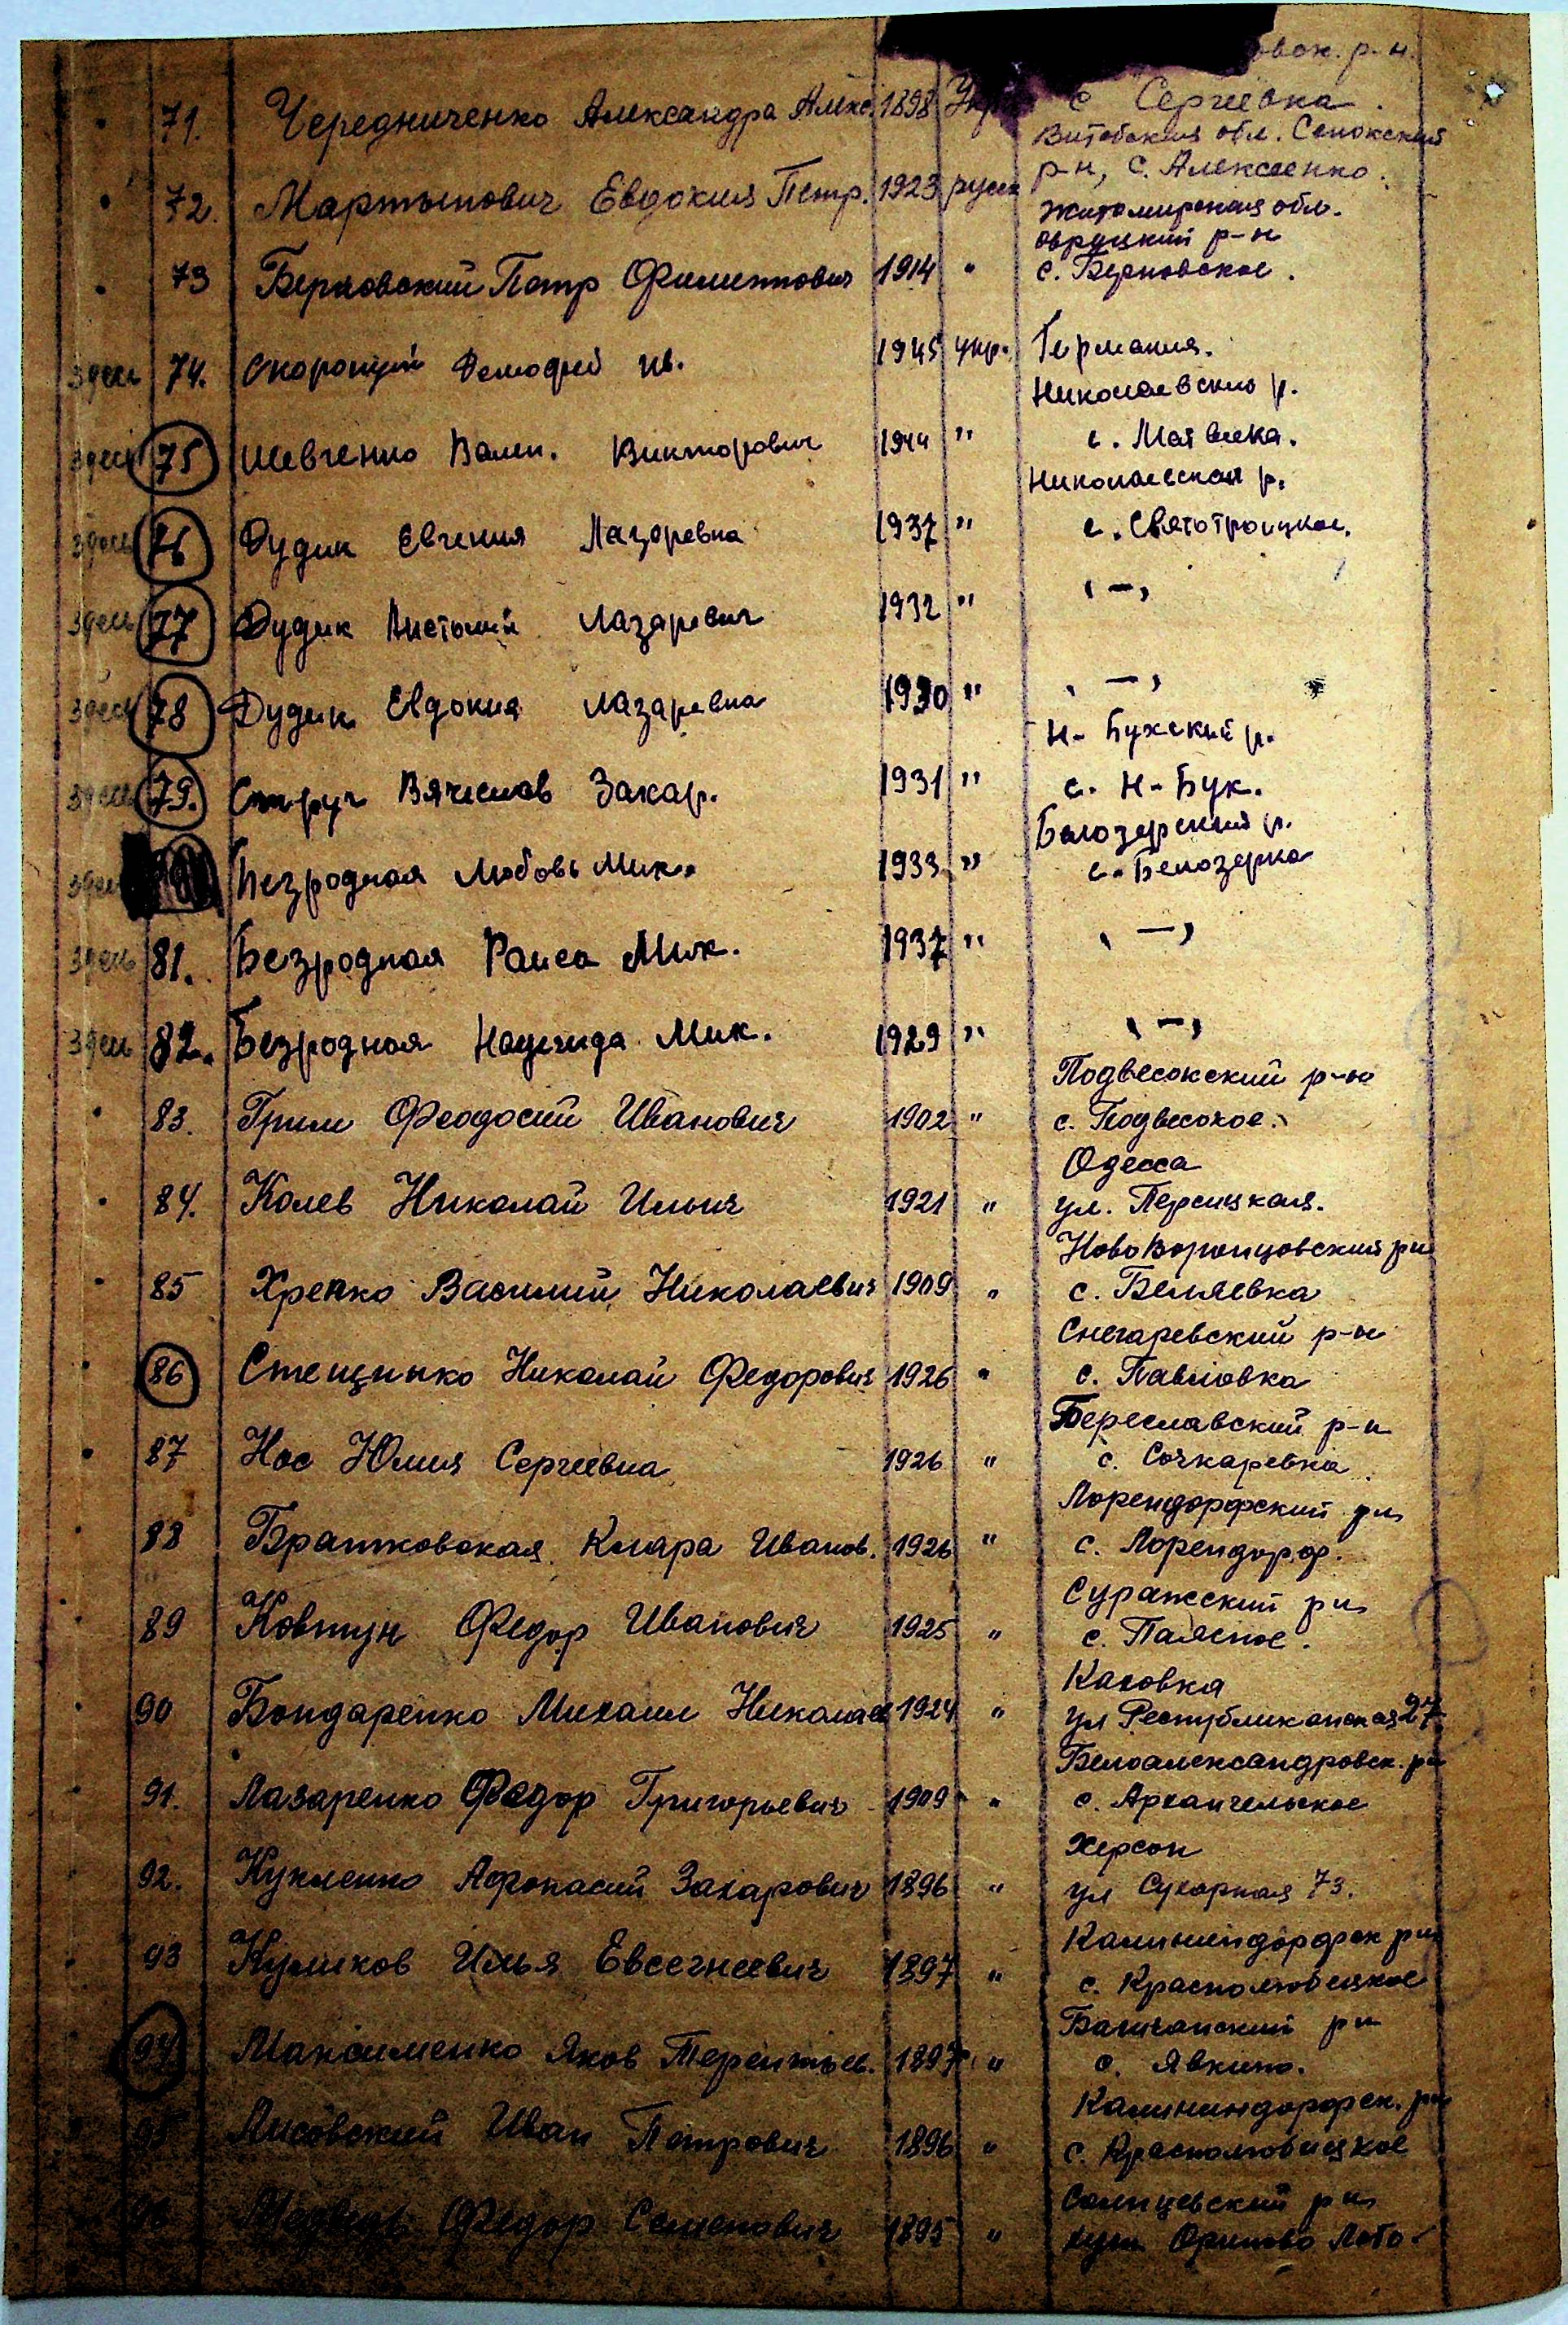 р-н.
71. Чередниченко Александра Алекс. 1898 Укр с Сергеевка.
Витебская обл.
72. Мартынович Евдокия Петр. 1923 русск р-н, с. Алексеенко.
Житомирская обл.
Овруцкий р-н
73 Берновский Петр 1914 " с. Берновское.
здесь 74. 1945 укр. Германия.
Николаевский р.
здесь 75 Шевченко Вален. Викторович 1944 " с. Матвеевка.
Николаевская р.
здесь 76 Дудик Евгения Лазаревна 1937 " с. Святотроицкое.
здесь 77 Дудик Анатолий Лазаревич 1932 " "—"
здесь 78 Дудик Евдокия Лазаревна 1930 " "—"
Н-Бугский р.
здесь 79. Струч Вячеслав Захар. 1931 " с. Н-Бук.
Белозерский р.
здесь Безродная Любовь Мик. 1933 " с. Белозерка
здесь 81. Безродная Раиса Мик. 1937 " "—"
здесь 82. Безродная Надежда Мик. 1929 " "—"
Подвесокский р-н
83. Грим Феодосий Иванович 1902 " с. Подвесокое.
Одесса
84. Колев Николай Ильич 1921 " ул.
Нововоронцовский рн
85 Хренко Василий Николаевич 1909 " с. Беляевка
Снегаревский р-н
86 Стецынко Николай Федорович 1926 " с. Павловка
Береславский р-н
87 Нос Юлия Сергеевна 1926 " с. Сочкаревка
Лорендорфский рн
88 Братковская Клара Иванов. 1926 " с. Лорендорф.
Суражский рн
89 Ковтун Федор Иванович 1925 " с.
Каховка
90 Бондаренко Михаил Николаев 1924 " ул Республиканская 27
Белоалександровск. рн
91. Лазаренко Федор Григорьевич 1909 " с. Архангельское
Херсон
92. Кукленко Афонасий Захарович 1896 " ул Сухарная 73.
Калининдорфск рн
93 Куликов Илья Евсегнеевич 1897 " с. Краснолюбецкое
рн
94 Максименко Яков Терентьев. 1897 " с. Явкино.
Калининдорфск. рн
95 Лисовский Иван Петрович 1896 " с. Краснолюбецкое
Солнцевский рн
96 Медведь Федор Семенович 1895 " хут.